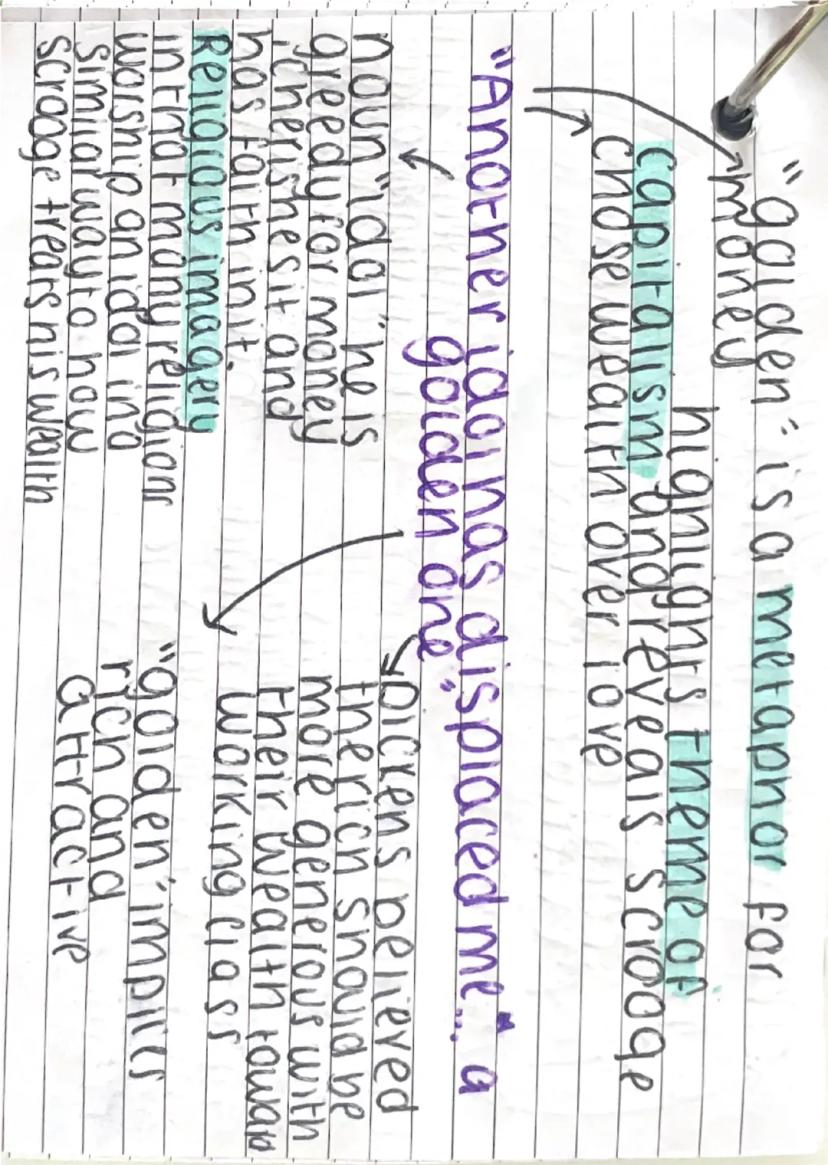 "golden" is a metaphor for
money
highlights theme of
capitalism and reveals scrooge
chose wealth over love
"Another idol has displaced me"... a
golden one"
noun "idol" he is
greedy for money
, cherishes it and
has faith in it.
Religious imagery
in that many religions
worship an idol in a
similar way to how
scrooge treats his wealth
Dickens believed
the rich should be
more generous with
their wealth toward
working class
"golden" implies
rich and
attractive